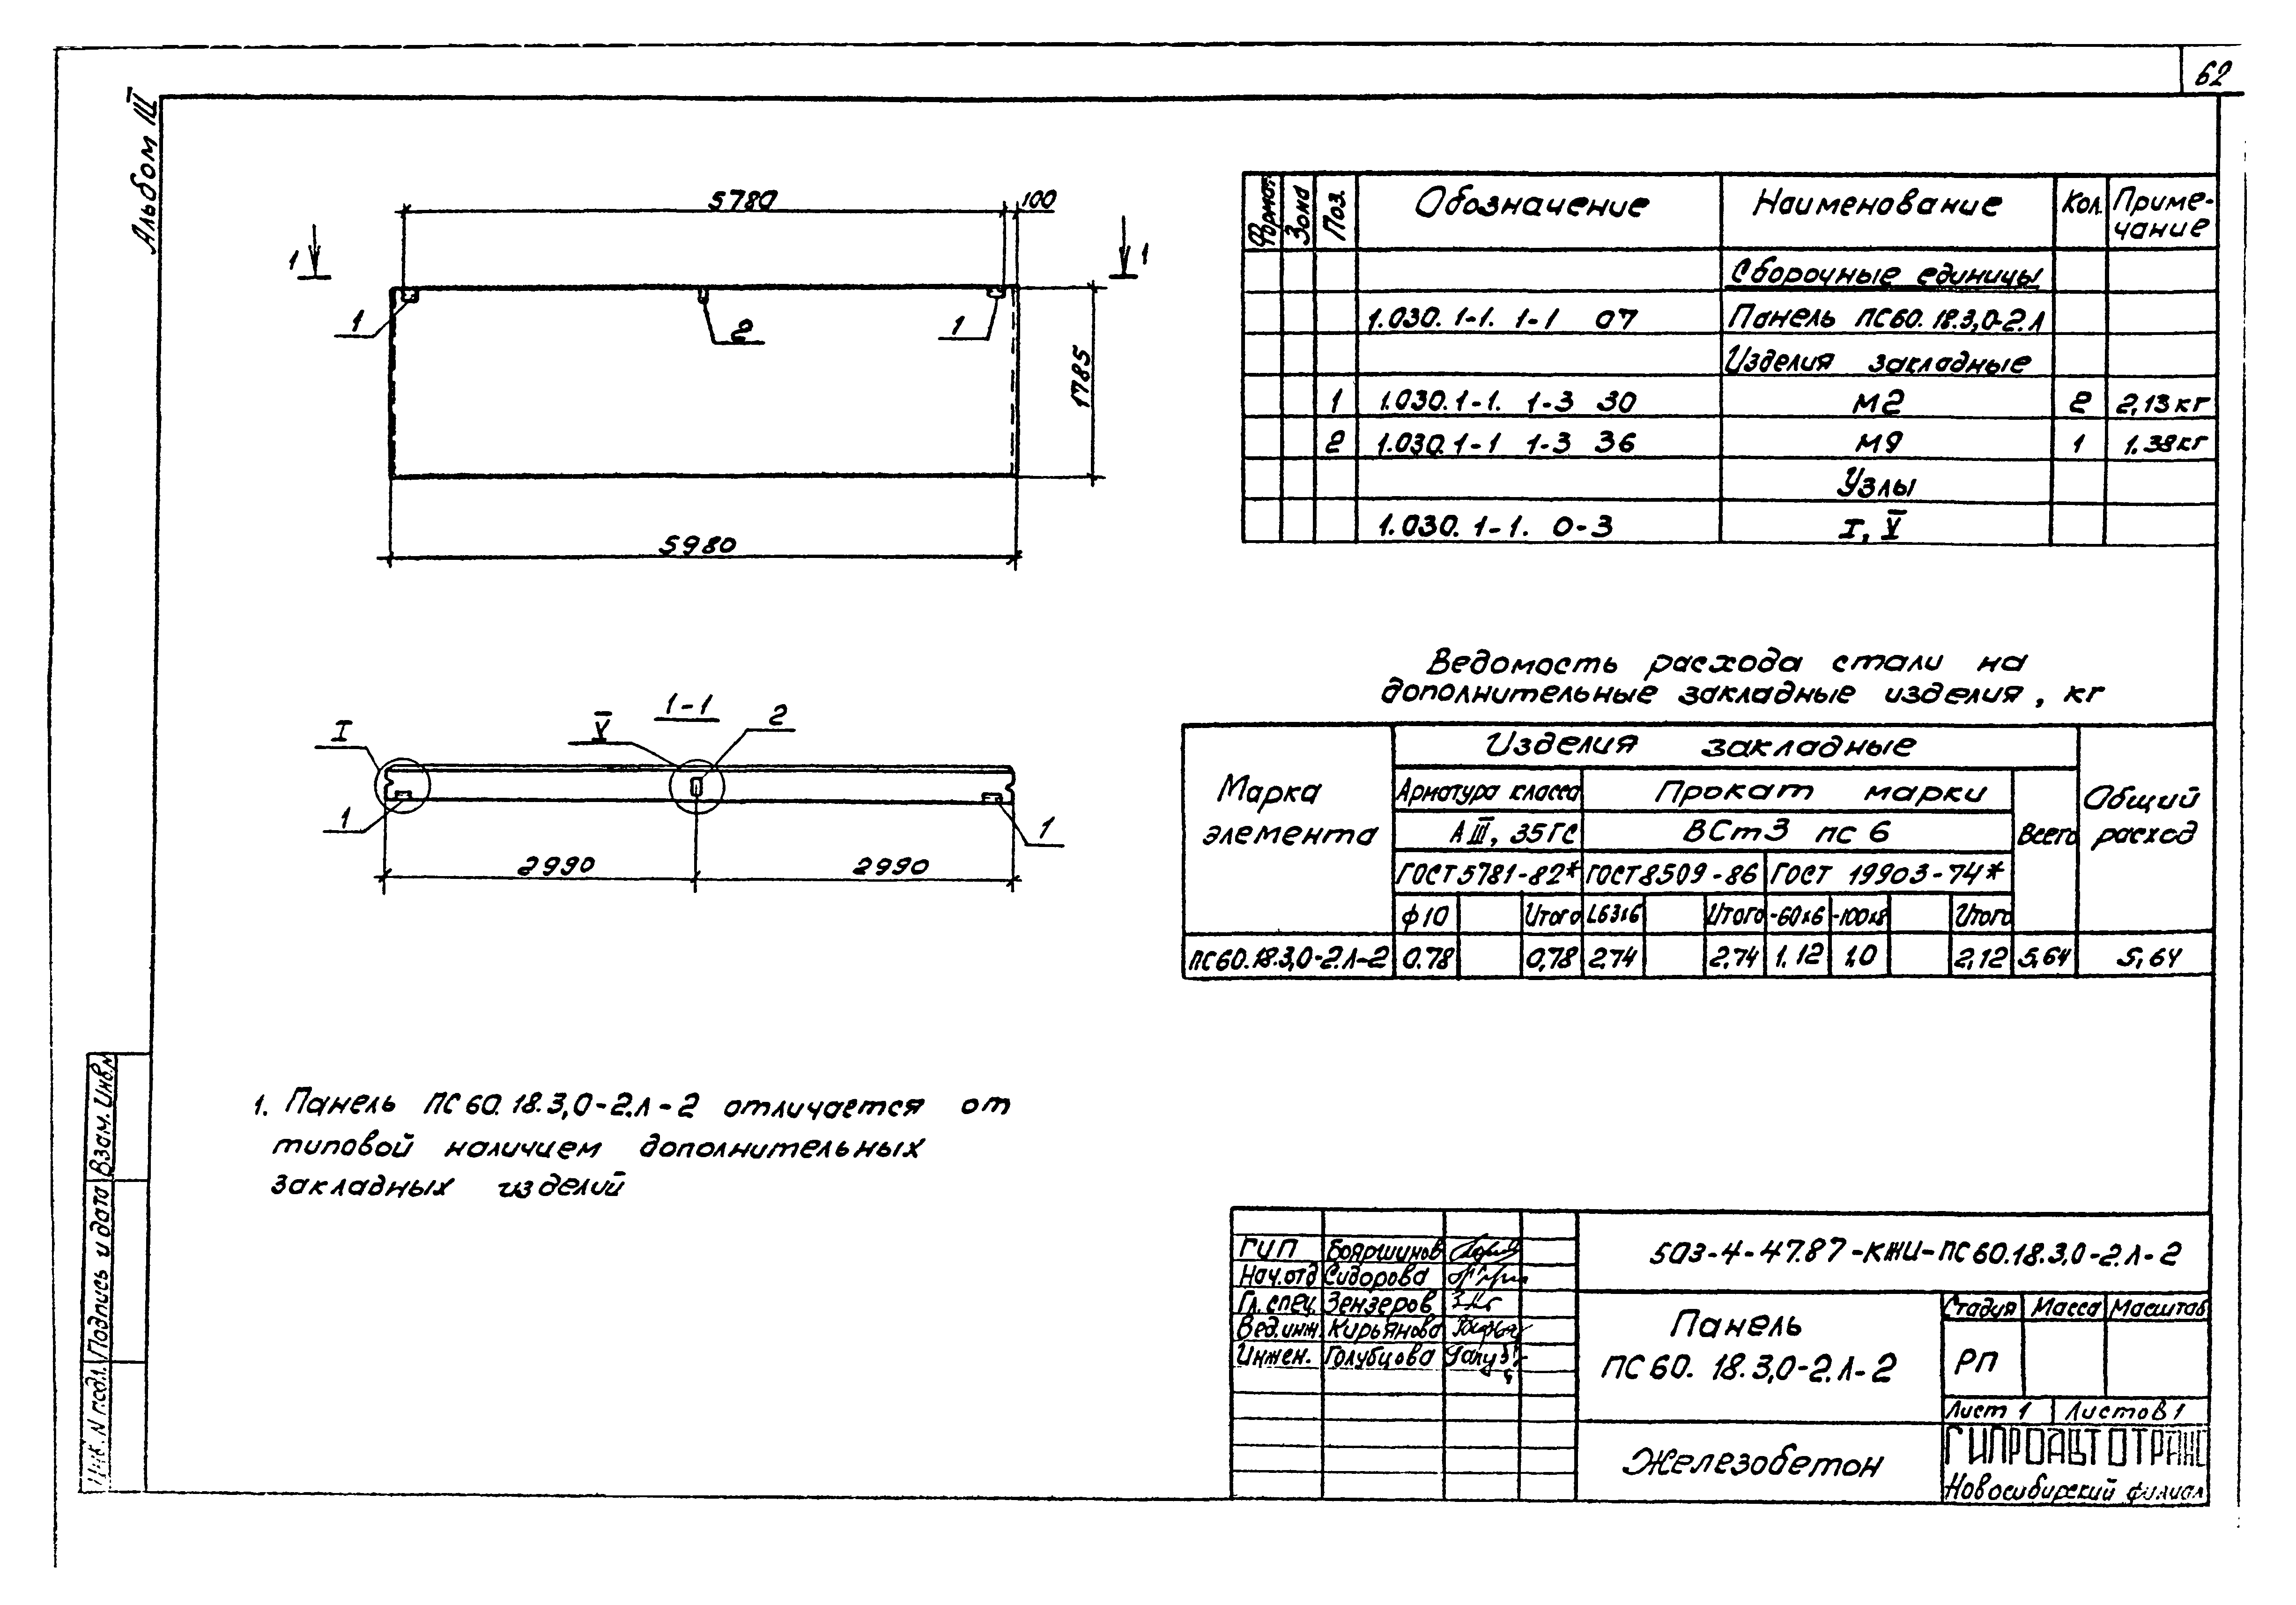 62
Альбом III
5780
100
1
1
1
2
1
1785
5980
1-1
I
V
2
1
1
2990
2990
Формат. Зона Поз. Обозначение Наименование Кол. Приме-
чание
Сборочные единицы
1.030.1-1. 1-1 07 Панель ПС60.18.3,0-2.Л
Изделия закладные
1 1.030.1-1. 1-3 30 М2 2 2,13кг
2 1.030.1-1 1-3 36 М9 1 1.38кг
Узлы
1.030.1-1. 0-3 I, V
Ведомость расхода стали на
дополнительные закладные изделия, кг
Марка
элемента
Изделия закладные
Общий
расход
Арматура класса Прокат марки
АIII, 35ГС ВСт3 пс 6 Всего
ГОСТ 5781-82* ГОСТ 8509-86 ГОСТ 19903-74*
ф10 Итого L63х6 Итого -60х6 -100х8 Итого
ПС60.18.3,0-2.Л-2 0.78 0,78 2,74 2,74 1,12 1,0 2,12 5,64 5,64
1. Панель ПС60.18.3,0-2.Л-2 отличается от
типовой наличием дополнительных
закладных изделий
Взам. Инв.N
Подпись и дата
Инв. N подл.
ГИП Бояршинов
Нач.отд Сидорова
Гл. спец. Зензеров
Вед.инж. Кирьянова
Инжен. Голубцова
503-4-47.87-КЖИ-ПС60.18.3,0-2.Л-2
Панель
ПС60.18.3,0-2.Л-2
Стадия Масса Масштаб
РП
Лист 1 Листов 1
Железобетон
ГИПРОАВТОТРАНС
Новосибирский филиал